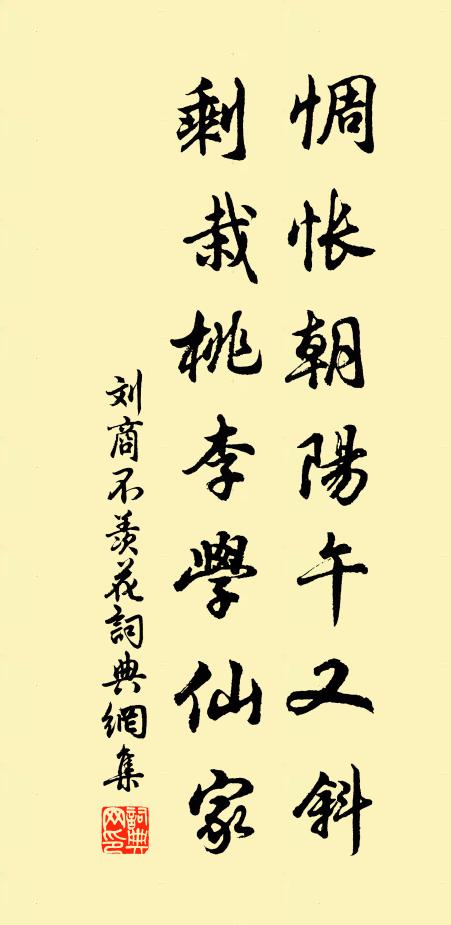 惆悵朝陽午又斜
剩栽桃李學仙家
刘商不羨花詞典網集
詞典网印